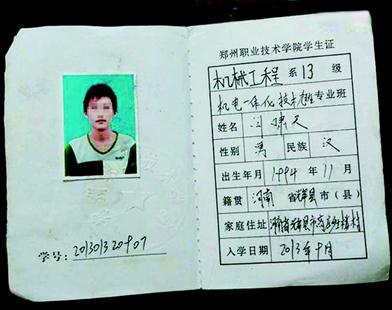 学号: 201301320907
郑州职业技术学院学生证
机械工程 系 13 级
机电一体化技术 专业班
姓名 闫啸天
性别 男 民族 汉
出生年月 1994年11月
籍贯 河南 省辉县市(县)
家庭住址 河南省辉县市高庄乡土楼村
入学日期 2013年9月